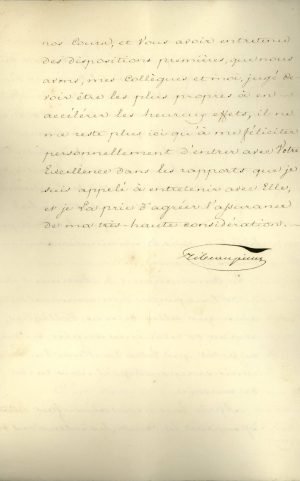 nos Cours, et Vous avoir entretenu
des dispositions premières, que nous
avons, mes Collègues et moi, jugé de
voir être les plus propres à en
accélérer les heureux effets, il ne
me reste plus ici qu'à me féliciter
personnellement d'entrer avec Votre
Excellence dans les rapports que je
suis appelé à entretenir avec Elle,
et je La prie d'agréer l'assurance
de ma très-haute considération.